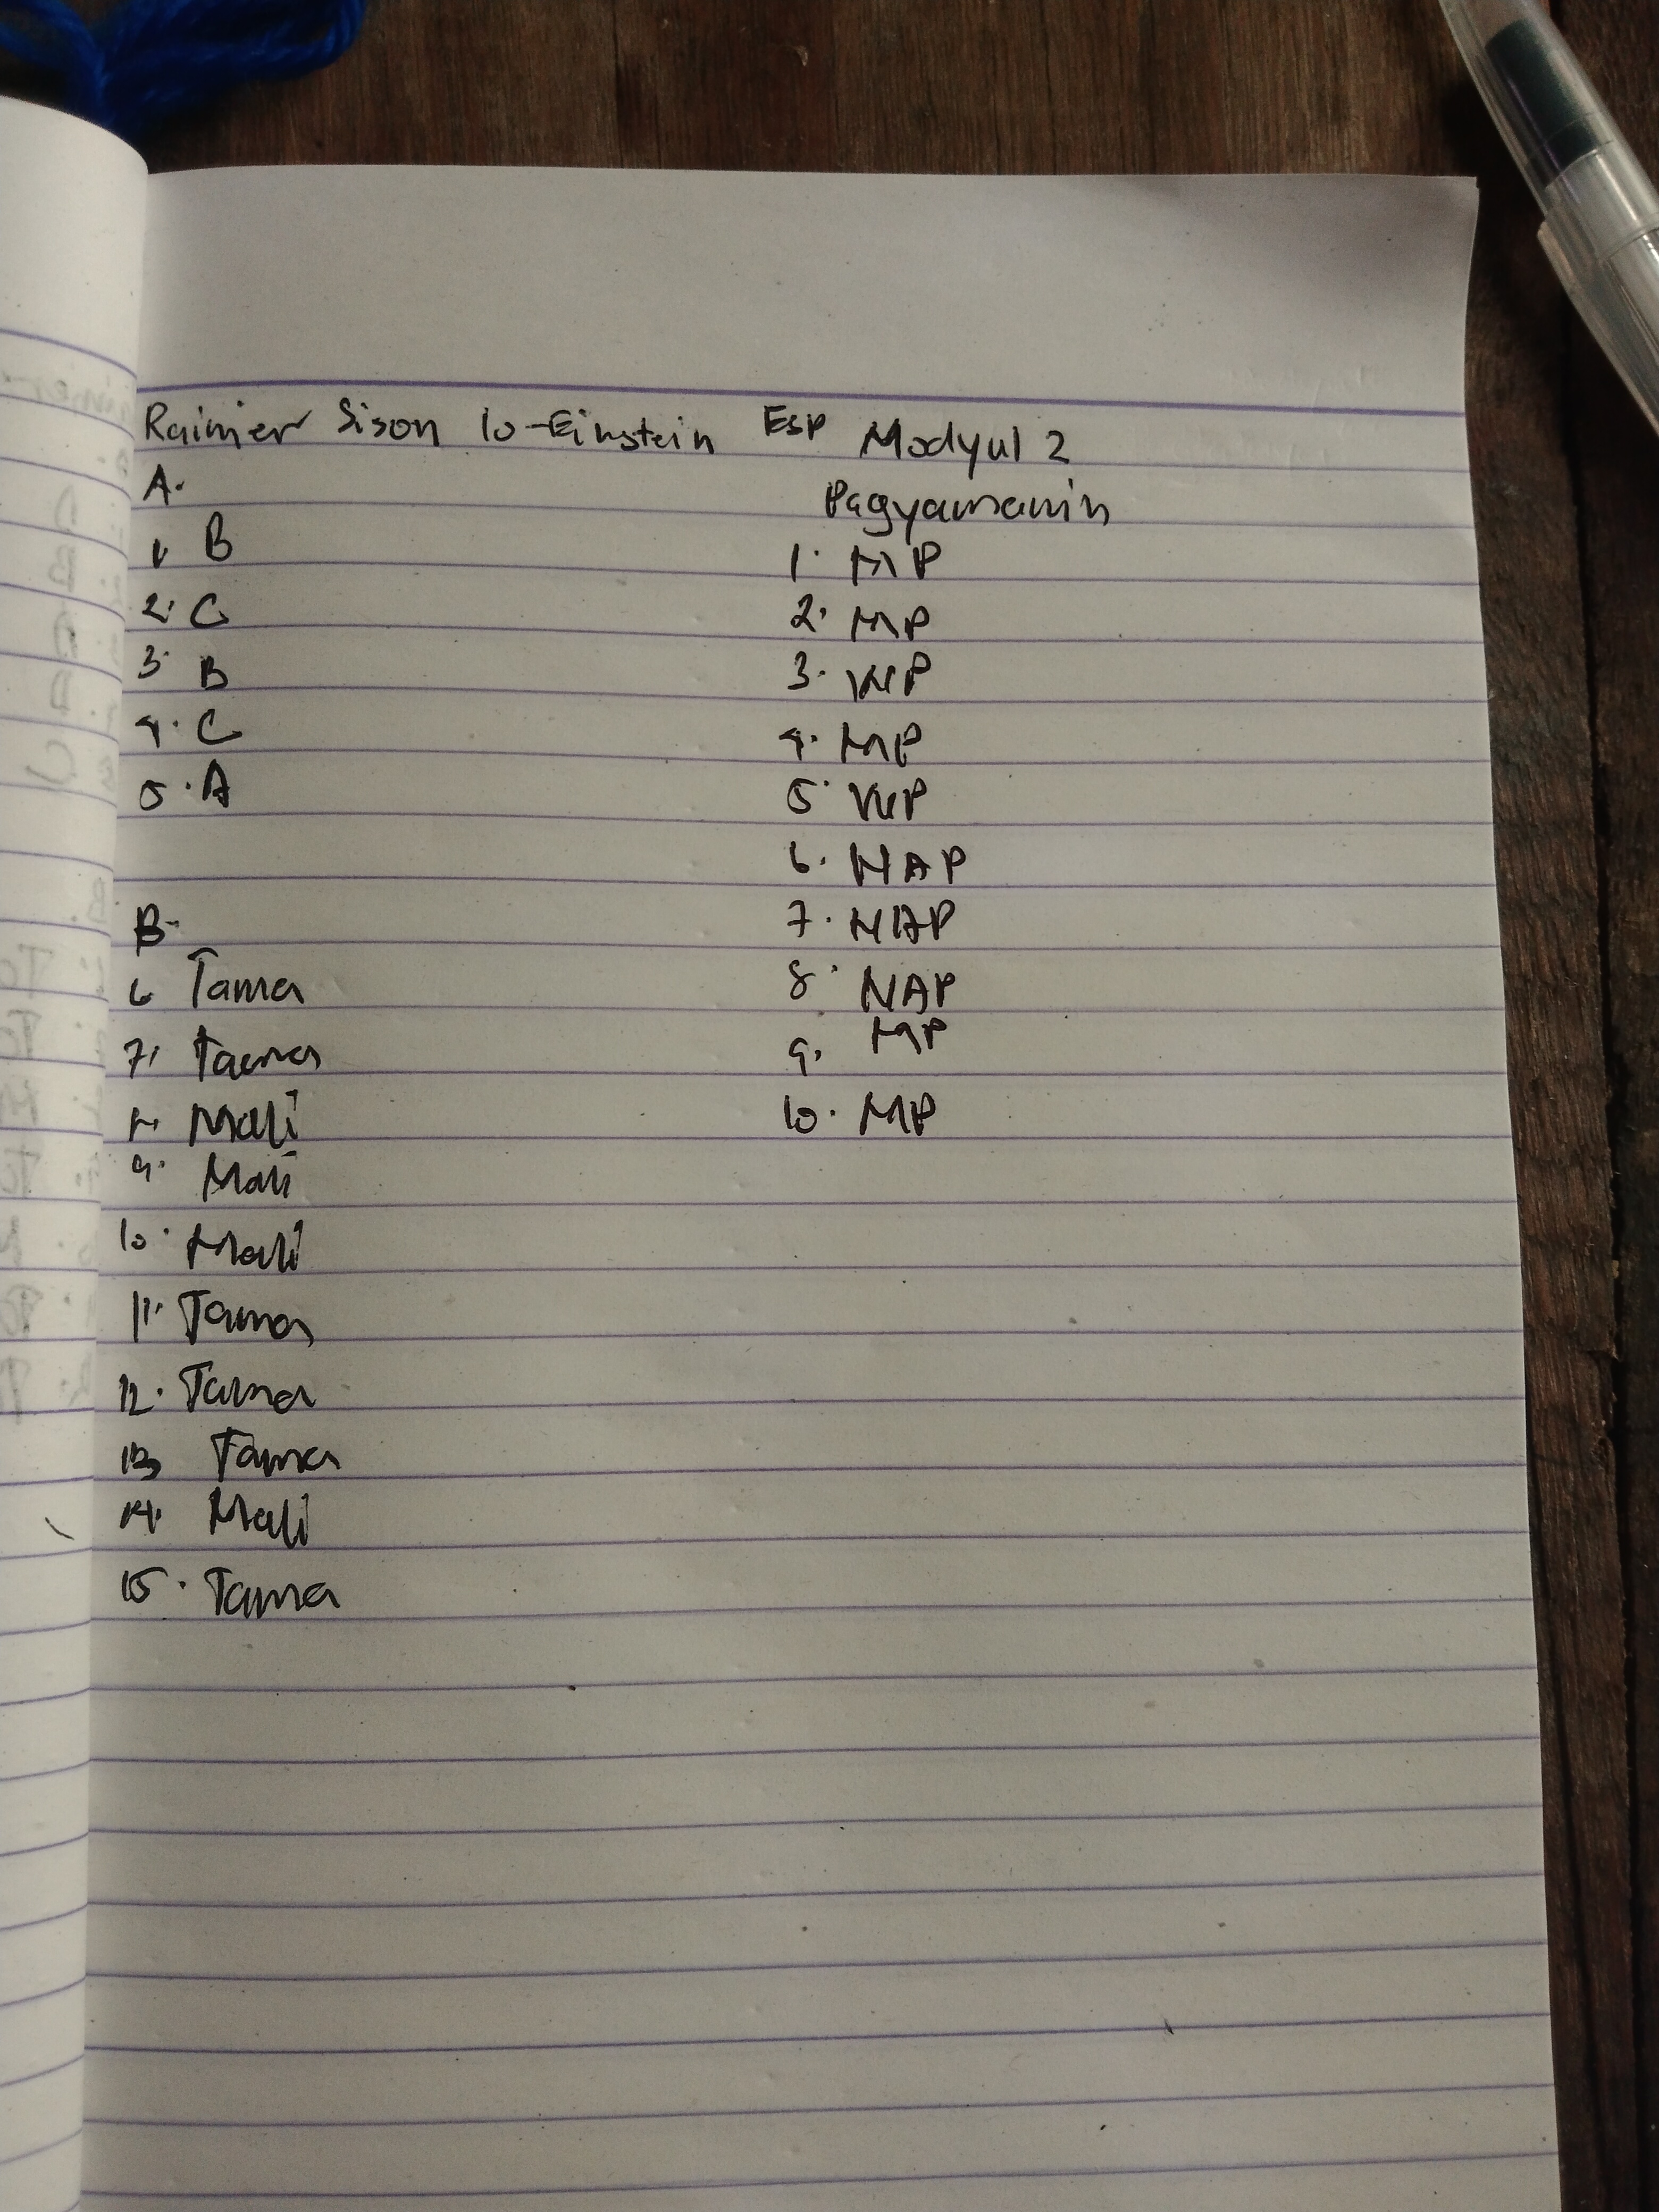 Rainier Sison 10-Einstein ESP Modyul 2
A.
1. B
2. C
3. B
4. C
5. A
B.
6 Tama
7. Tama
8. Mali
9. Mali
10. Mali
11. Tama
12. Tama
13 Tama
14. Mali
15. Tama
Pagyamanin
1. MP
2. MP
3. WP
4. MP
5. WP
6. NAP
7. NAP
8. NAP
9. MP
10. MP